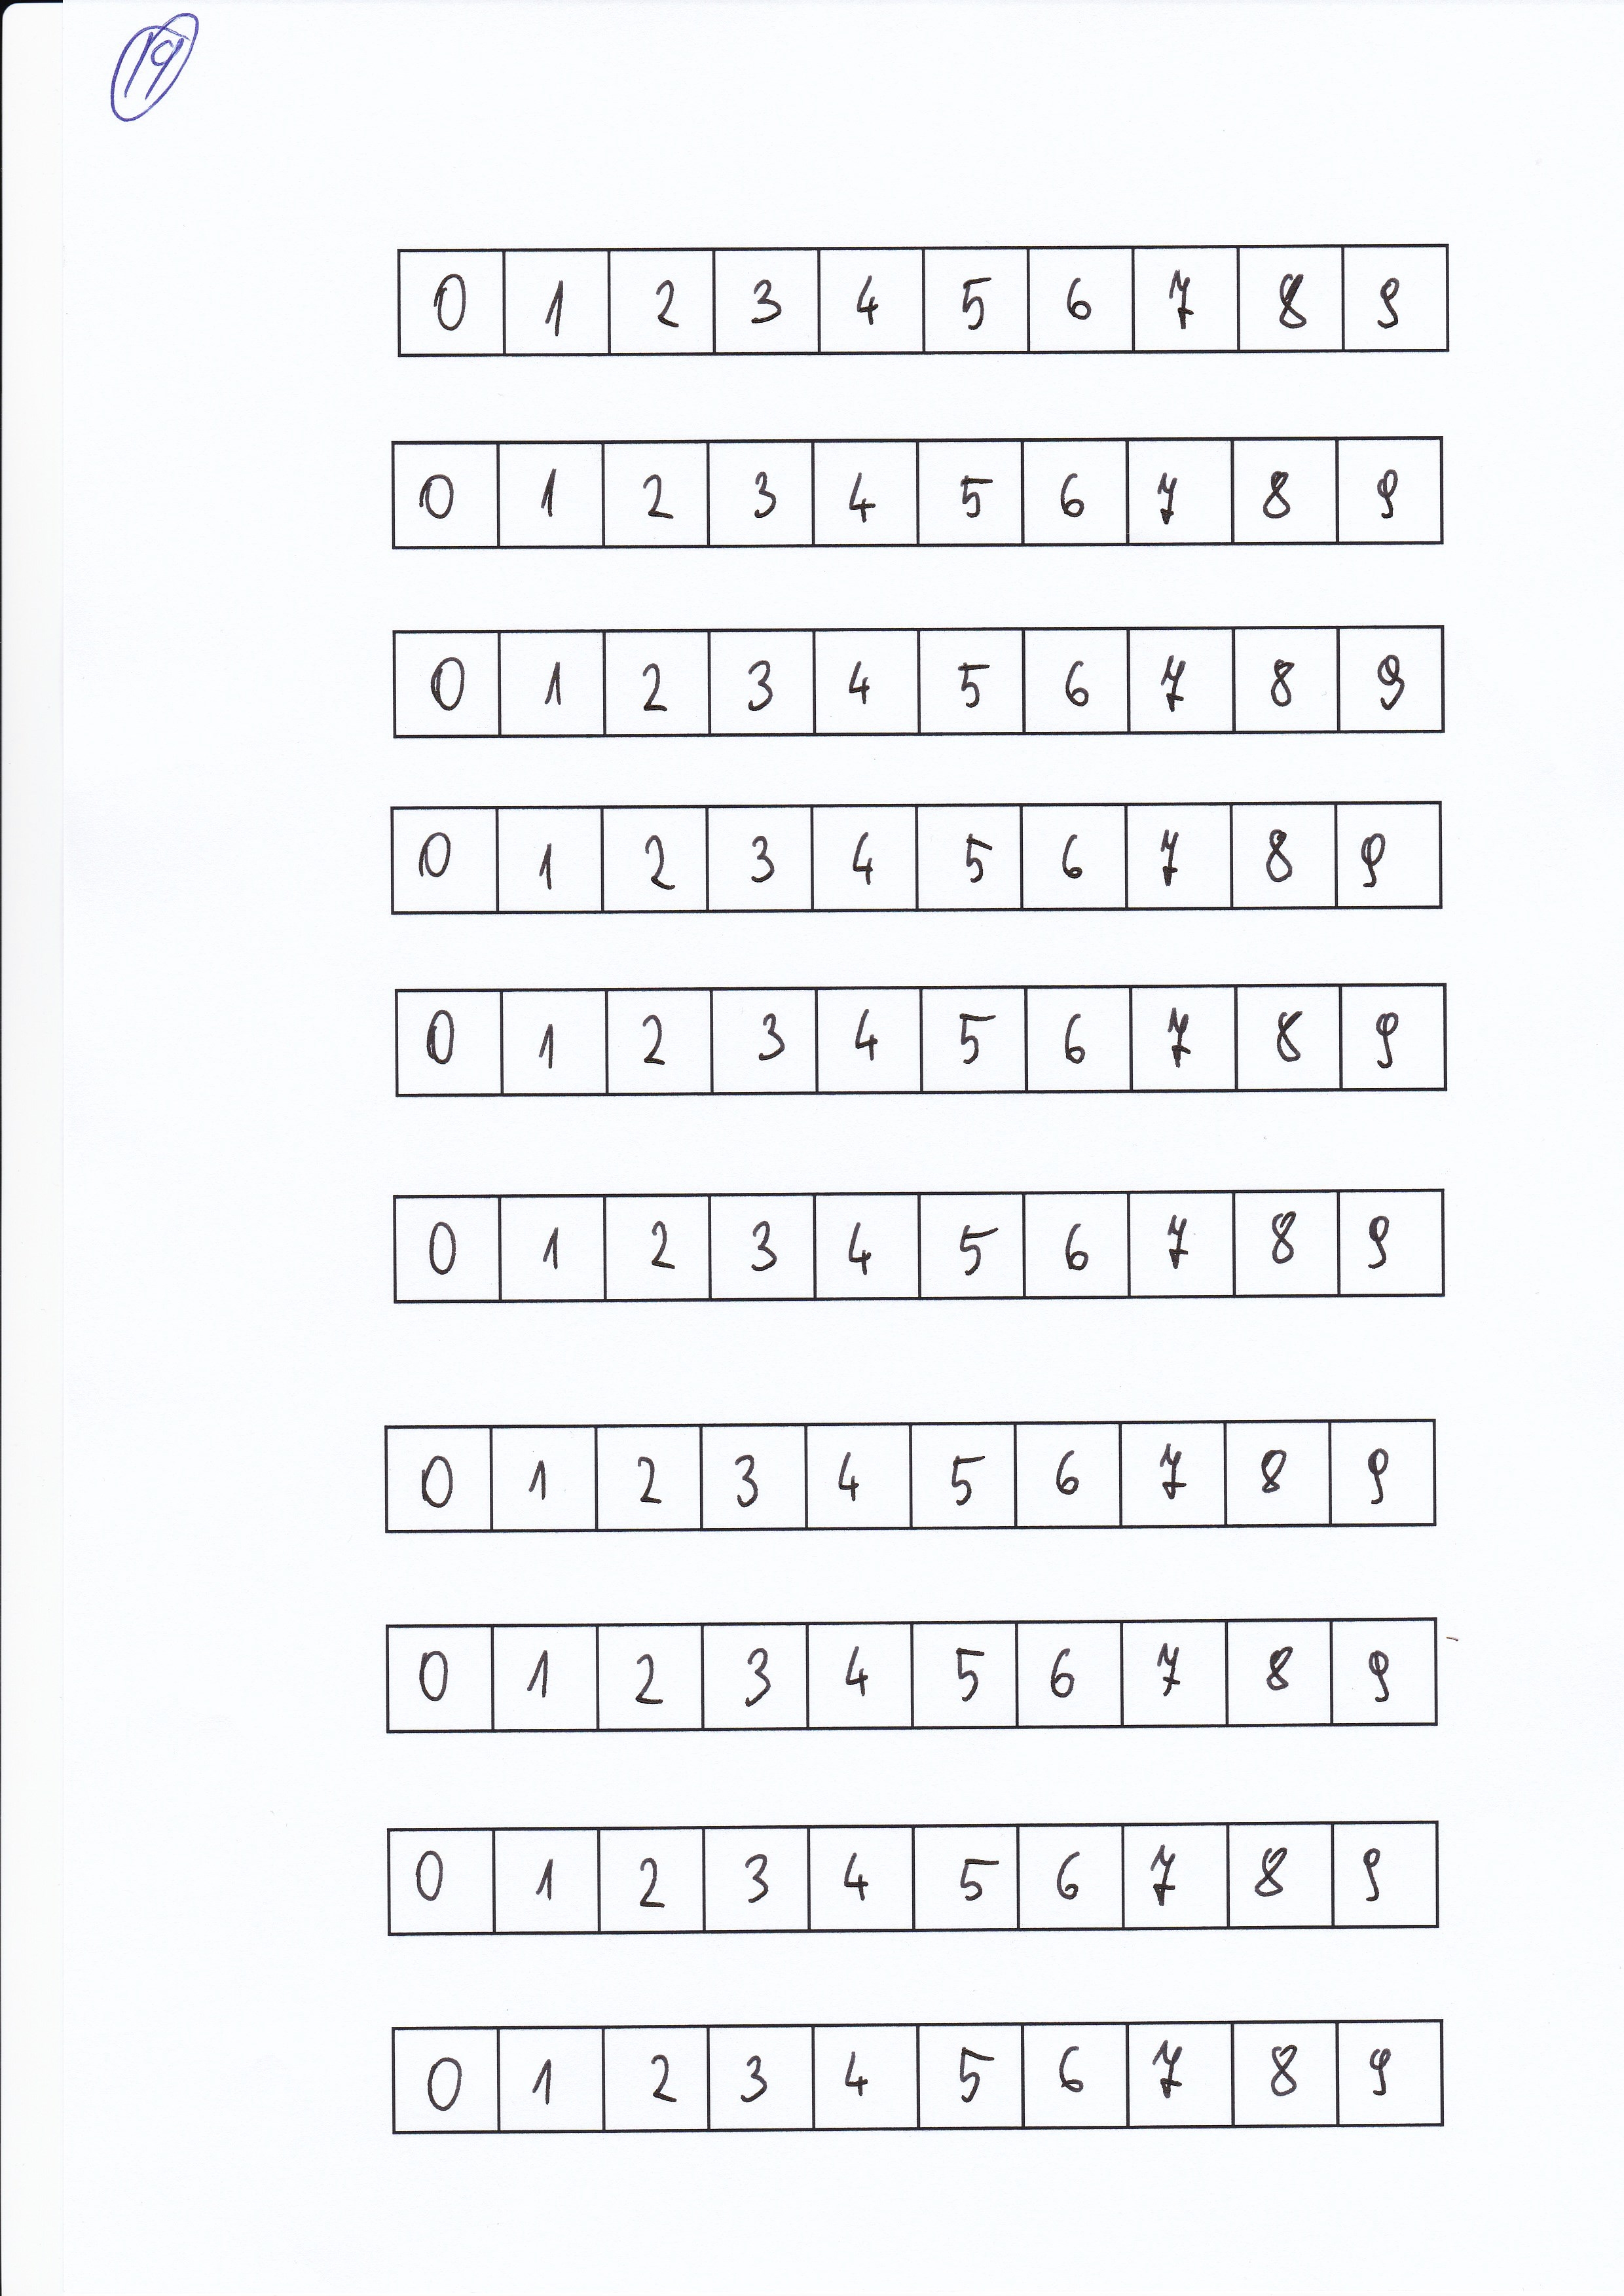 19
0 1 2 3 4 5 6 7 8 9
0 1 2 3 4 5 6 7 8 9
0 1 2 3 4 5 6 7 8 9
0 1 2 3 4 5 6 7 8 9
0 1 2 3 4 5 6 7 8 9
0 1 2 3 4 5 6 7 8 9
0 1 2 3 4 5 6 7 8 9
0 1 2 3 4 5 6 7 8 9
0 1 2 3 4 5 6 7 8 9
0 1 2 3 4 5 6 7 8 9